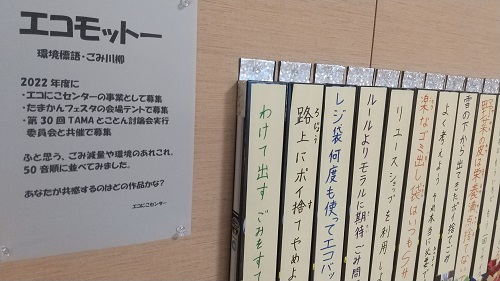 エコモットー
環境標語・ごみ川柳
2022年度に
・エコにこセンターの事業として募集
・たまかんフェスタの会場テントで募集
・第30回TAMAとことん討論会実行
委員会と共催で募集
ふと思う、ごみ減量や環境のあれこれ。
50音順に並べてみました。
あなたが共感するのはどの作品かな?
エコにこセンター
雪の下から出てきたポイ捨てごみ
よく考えよう
楽なゴミ出し袋はいつも
リユースショップを利用し
ルールよりモラルに期待ごみ問
レジ袋何度も使ってエコバッ
路上にポイ捨てやめよ
わけて出すごみもすて